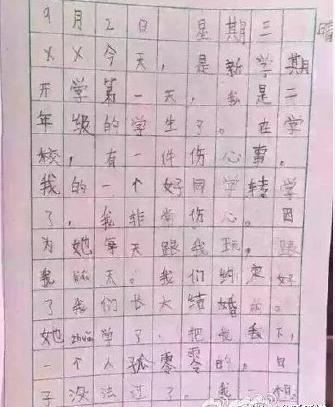 9月2日 星期三 晴
××今天，是新学期
开学第一天，我是二
年级的学生了。在学
校，有一件伤心事。
我的一个好同学转学
了，我非常伤心。因
为她每天跟我玩，跟
我聊天。我们约定好
了我们长大结婚的。
她zhuǎn学了，把我丢下，
一个人孤零零的。日
子没法过了。我一想